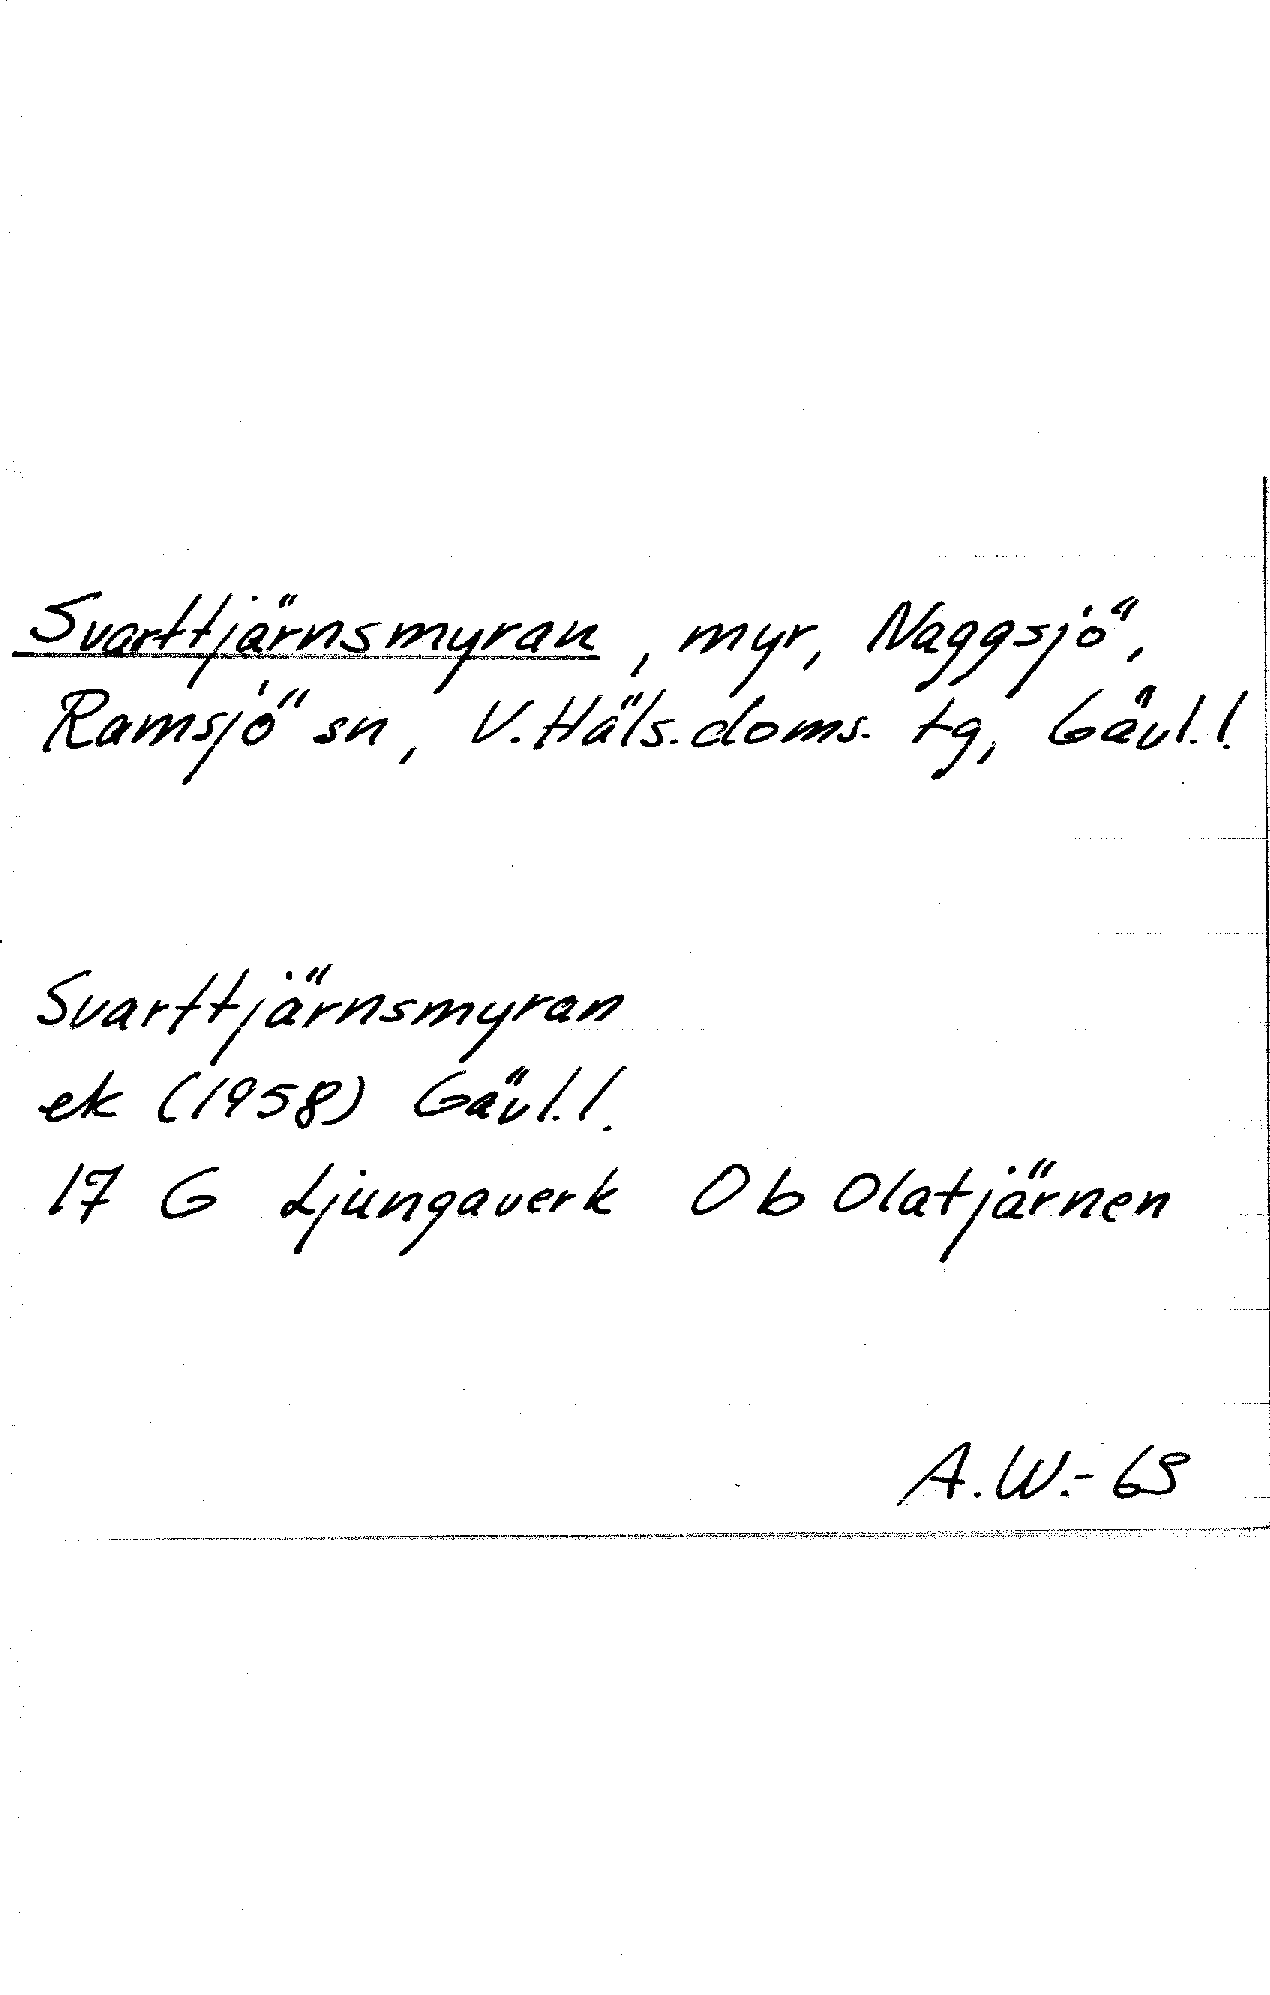 Svarttjärnsmyran, myr, Naggsjö,
Ramsjö sn, V. Häls. doms. tg, Gävl. l.
Svarttjärnsmyran
ek (1958) Gävl. l.
17 G Ljungaverk 0 b Olatjärnen
A.W.-69